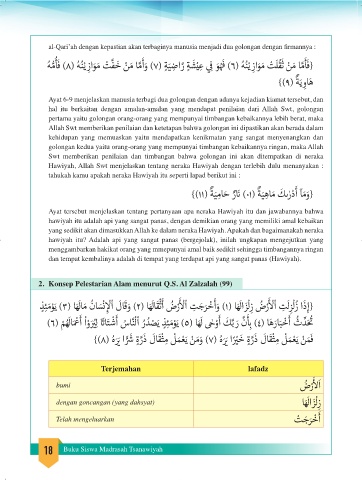 al-Qari'ah dengan kepastian akan terbaginya manusia menjadi dua golongan dengan firmannya :
{فَأَمَّا مَنْ ثَقُلَتْ مَوَازِينُهُ (٦) فَهُوَ فِي عِيشَةٍ رَاضِيَةٍ (٧) وَأَمَّا مَنْ خَفَّتْ مَوَازِينُهُ (٨) فَأُمُّهُ
هَاوِيَةٌ (٩)}
Ayat 6-9 menjelaskan manusia terbagi dua golongan dengan adanya kejadian kiamat tersebut, dan
hal itu berkaitan dengan amalan-amalan yang mendapat penilaian dari Allah Swt, golongan
pertama yaitu golongan orang-orang yang mempunyai timbangan kebaikannya lebih berat, maka
Allah Swt memberikan penilaian dan ketetapan bahwa golongan ini dipastikan akan berada dalam
kehidupan yang memuaskan yaitu mendapatkan kenikmatan yang sangat menyenangkan dan
golongan kedua yaitu orang-orang yang mempunyai timbangan kebaikannya ringan, maka Allah
Swt memberikan penilaian dan timbangan bahwa golongan ini akan ditempatkan di neraka
Hawiyah, Allah Swt menjelaskan tentang neraka Hawiyah dengan terlebih dulu menanyakan :
tahukah kamu apakah neraka Hawiyah itu seperti lapad berikut ini :
{وَمَا أَدْرَاكَ مَاهِيَةٌ (١٠) نَارٌ حَامِيَةٌ (١١)}
Ayat tersebut menjelaskan tentang pertanyaan apa neraka Hawiyah itu dan jawabannya bahwa
hawiyah itu adalah api yang sangat panas, dengan demikian orang yang memiliki amal kebaikan
yang sedikit akan dimasukkan Allah ke dalam neraka Hawiyah. Apakah dan bagaimanakah neraka
hawiyah itu? Adalah api yang sangat panas (bergejolak), inilah ungkapan mengejutkan yang
menggambarkan hakikat orang yang mempunyai amal baik sedikit sehingga timbangannya ringan
dan tempat kembalinya adalah di tempat yang terdapat api yang sangat panas (Hawiyah).
2. Konsep Pelestarian Alam menurut Q.S. Al Zalzalah (99)
{إِذَا زُلْزِلَتِ الْأَرْضُ زِلْزَالَهَا (١) وَأَخْرَجَتِ الْأَرْضُ أَثْقَالَهَا (٢) وَقَالَ الْإِنْسَانُ مَالَهَا (٣) يَوْمَئِذٍ
تُحَدِّثُ أَخْبَارَهَا (٤) بِأَنَّ رَبَّكَ أَوْحَى لَهَا (٥) يَوْمَئِذٍ يَصْدُرُ النَّاسُ أَشْتَاتًا لِيُرَوْا أَعْمَالَهُمْ (٦)
فَمَنْ يَعْمَلْ مِثْقَالَ ذَرَّةٍ خَيْرًا يَرَهُ (٧) وَمَنْ يَعْمَلْ مِثْقَالَ ذَرَّةٍ شَرًّا يَرَهُ (٨)}
Terjemahan lafadz
bumi الْأَرْضُ
dengan goncangan (yang dahsyat) زِلْزَالَهَا
Telah mengeluarkan أَخْرَجَتْ
18 Buku Siswa Madrasah Tsanawiyah